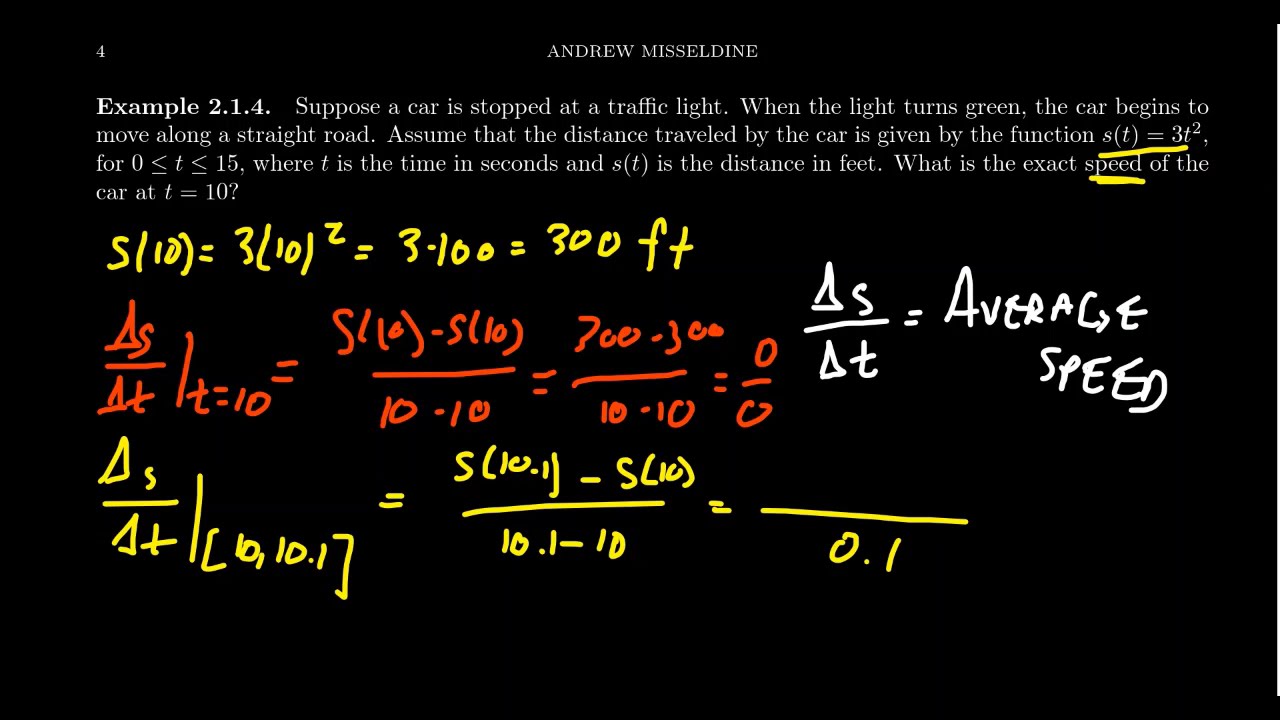 4
ANDREW MISSELDINE
Example 2.1.4. Suppose a car is stopped at a traffic light. When the light turns green, the car begins to
move along a straight road. Assume that the distance traveled by the car is given by the function s(t) = 3t²,
for 0 ≤ t ≤ 15, where t is the time in seconds and s(t) is the distance in feet. What is the exact speed of the
car at t = 10?
S(10) = 3(10)² = 3·100 = 300 ft
Δs/Δt |t=10 = S(10)-S(10)/10-10 = 300-300/10-10 = 0/0
Δs/Δt = AVERAGE
SPEED
Δs/Δt |[10, 10.1] = S(10.1) - S(10)/10.1-10 = /0.1